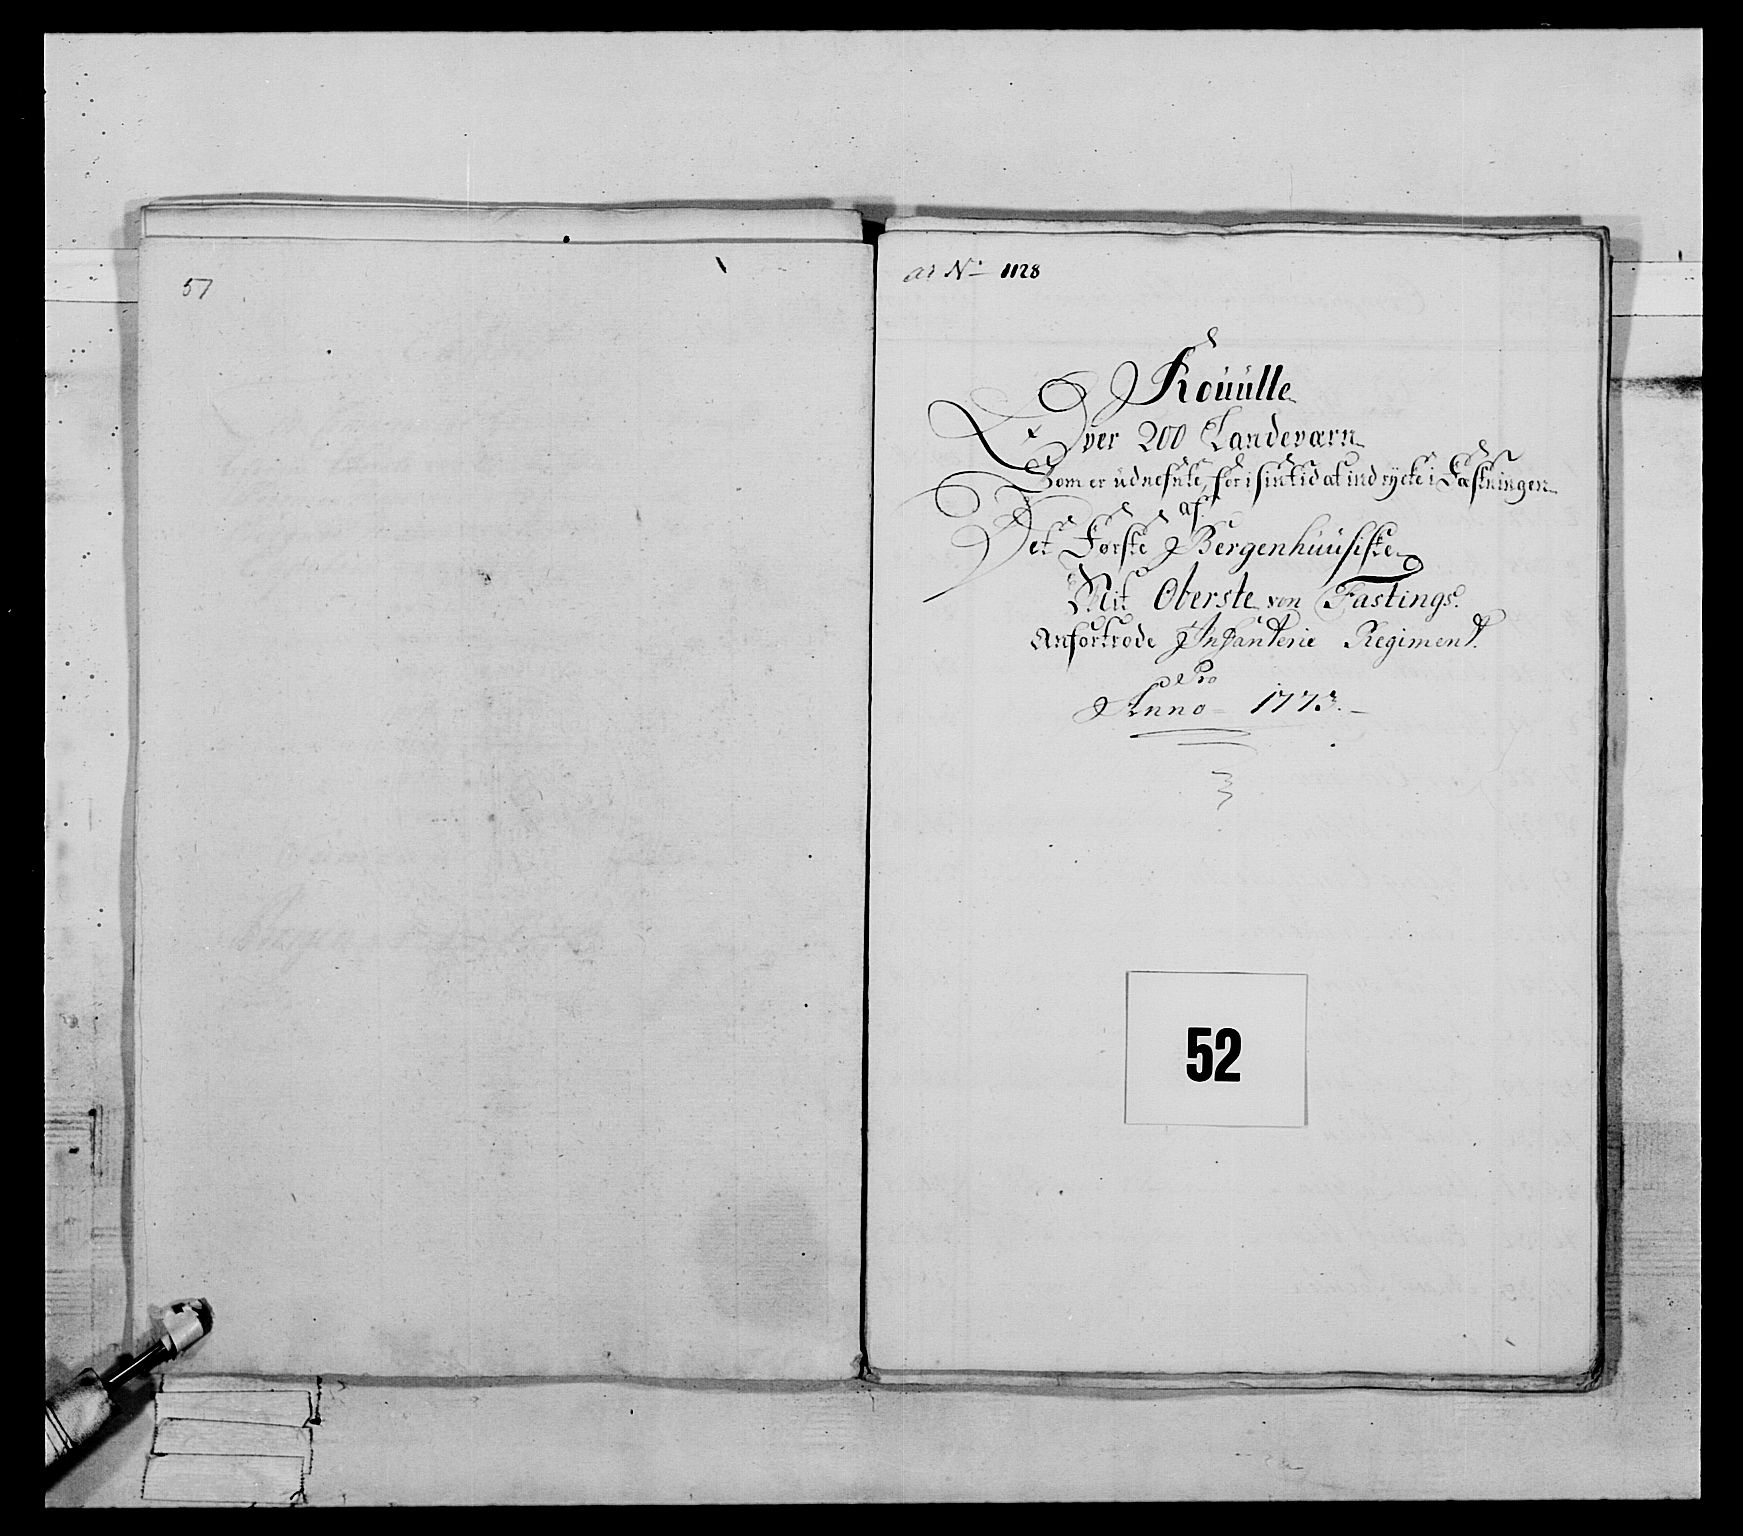 57
ad No 1128
Rouulle
Over 200 Landeværn
Som er udnefnte, for i sin tid at indrycke i Fæstningen
af
Det Første Bergenhuusiske
Mit Oberste von Fastings
Anfortrode Infanterie Regiment.
Pro
Anno 1773.
52